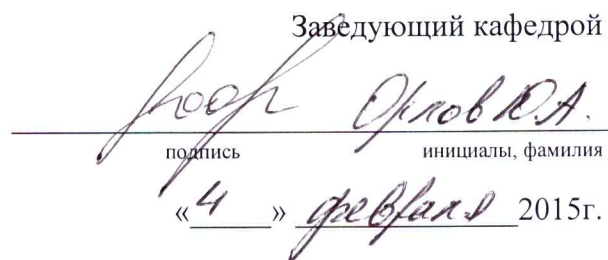 Заведующий кафедрой
Орлов Ю.А.
подпись инициалы, фамилия
«4» февраля 2015г.